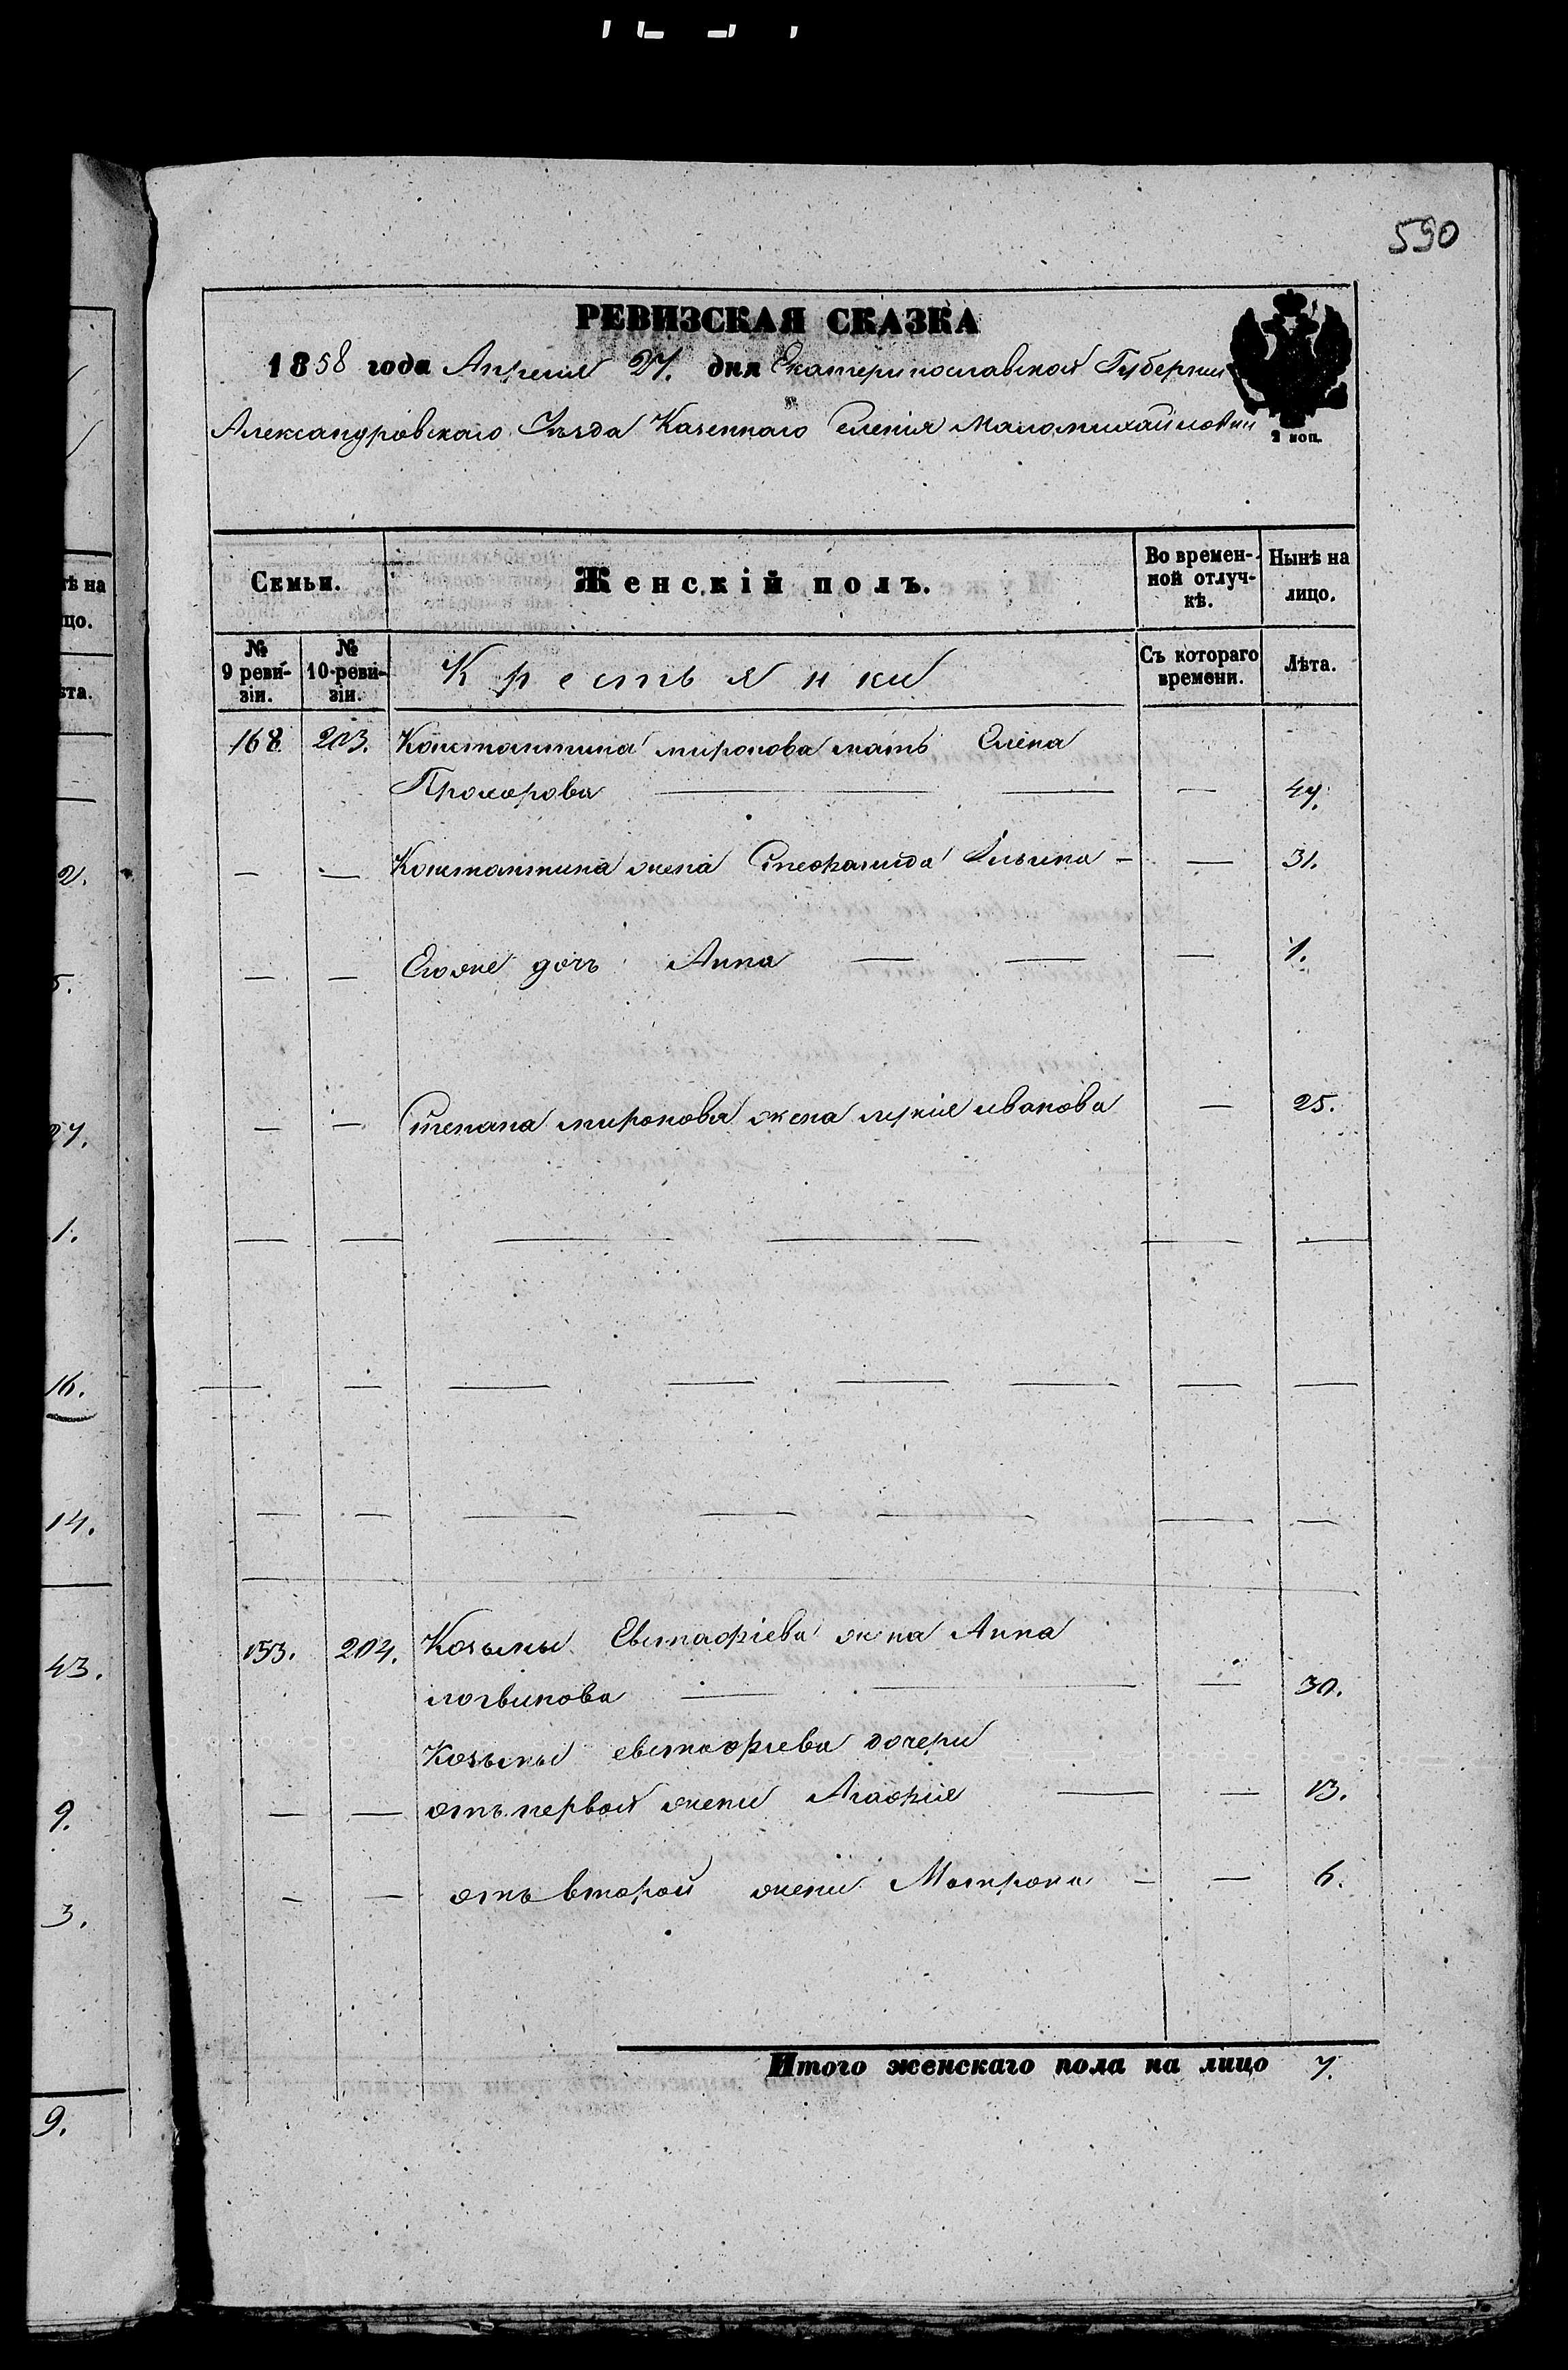 590
РЕВИЗСКАЯ СКАЗКА
1858 года Апреля 27. дня Екатеринославской Губернии
Александровскаго Уѣзда Казеннаго Селенія Маломихайловки
2 коп.
Семьи. Женскій полъ. Во времен- Нынѣ на
ной отлуч- лицо.
кѣ.
№ № Крестьянки Съ котораго Лѣта.
9 реви- 10-реви- времени.
зіи. зіи.
168 203. Константина миронова мать Елена
Прохорова — — — — 47.
— — Константина жена Степанида Ильина — — 31.
— — Егоже дочь Анна — — — 1.
— — Степана миронова жена иванова — 25.
— — — — — —
— — — — — — — —
— — — — — — —
153. 204. Козьмы Евстафіева жена Анна
логвинова — — — 30.
Козьмы евстафіева дочери
— — отъ первой жены Агафія — — 13.
— — отъ второй жены Матрона — — 6.
Итого женскаго пола на лицо 7.
ѣ на
цо.
ѣта.
2.
5.
27.
1.
16.
14.
43.
9.
3.
9.